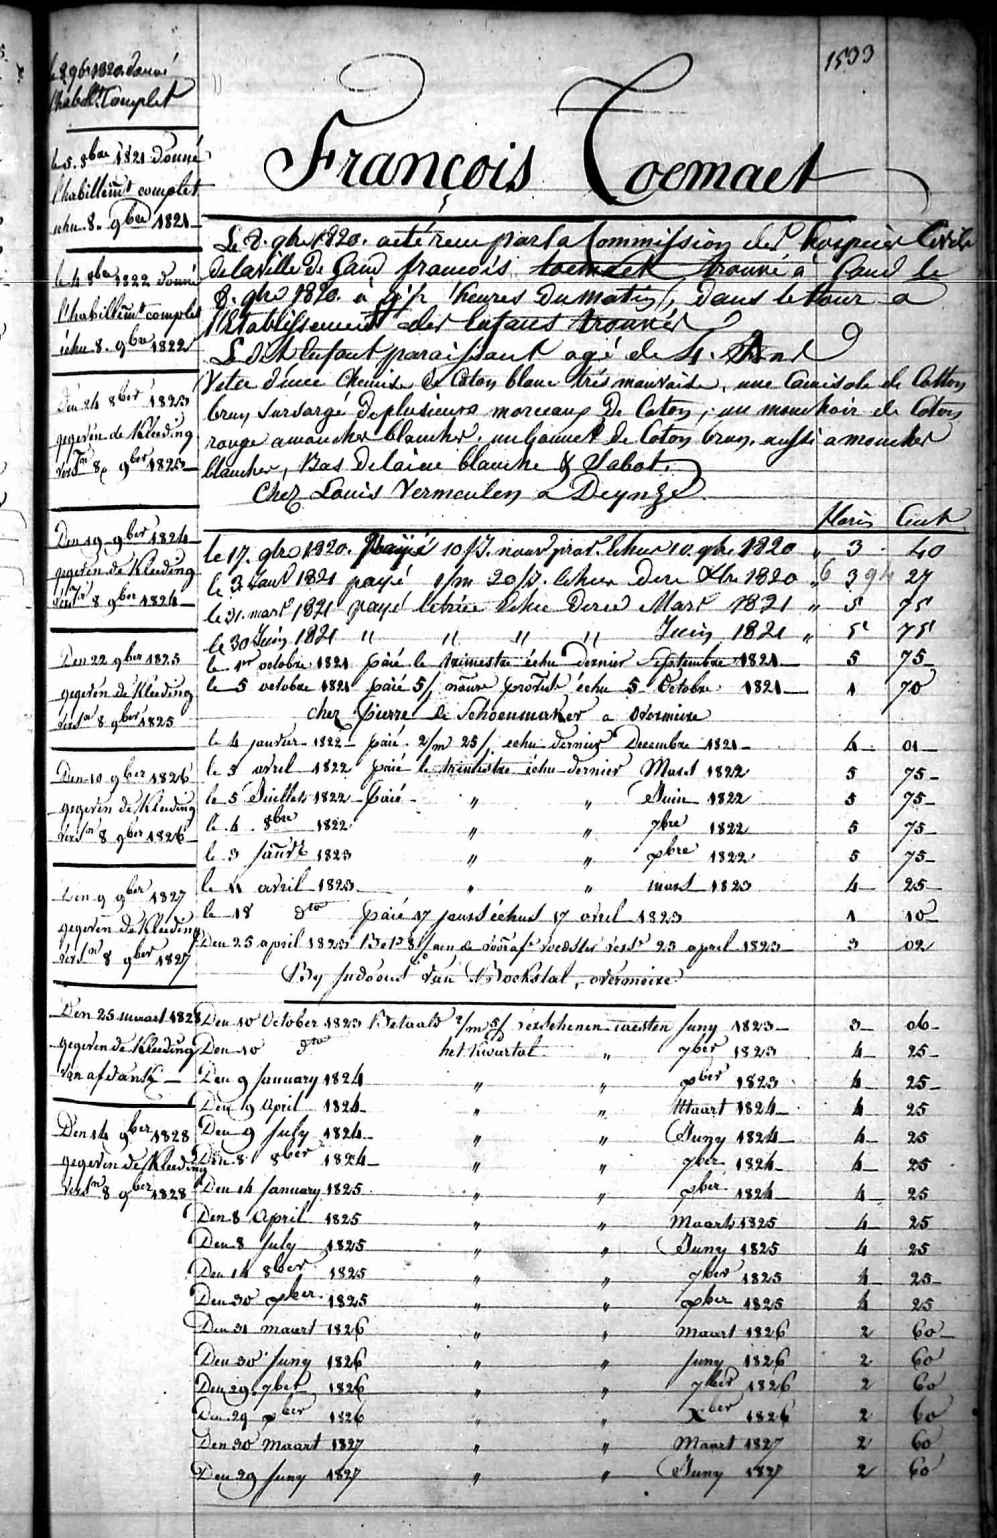 1533
le 8 9bre 1820 donné
l'habillt Complet
le 5. 8bre 1821 donné
l'habillemt complet
échu 8. 9bre 1821
le 4 8bre 1822 donné
l'habillemt complet
échu 8. 9bre 1822
Den 24 8ber 1823
gegeven de Kleeding
8 9ber 1823
Den 19 9ber 1824
gegeven de Kleeding
8 9ber 1824
Den 22 9ber 1825
gegeven de Kleeding
8 9ber 1825
Den 10 9ber 1826
gegeven de Kleeding
8 9ber 1826
Den 9 9ber 1827
gegeven de Kleeding
8 9ber 1827
Den 25 maart 1828
gegeven de Kleeding
van afdank
Den 14 9ber 1828
gegeven de Kleeding
8 9ber 1828
François Toemaet
Le 8. 9bre 1820. a été recu par la Commission des hospices Civils
de la ville de Gand francois toemaet trouvé à Gand le
8. 9bre 1820. à heures du matin, dans le tour a
l'Etablissement des Enfans trouvés
Le dit Enfant paraissant agé de 4. Ans
Vetu d'une Chemise de Coton blanc trés mauvaise, une Camisole de Cotton
brun sursargé de plusieurs morceaux de Coton, un mouchoir de Coton
rouge a mouches blanches, un bonnet de Coton brun, aussi a mouches
blanches, Bas de laine blanche & Sabot.
Chez Louis Vermeulen a Deynze
florin Cent
le 17. 9bre 1820. Payé 10 f. nour prov. echu 10. 9bre 1820 " 3 40
le 3 Janv 1821 payé 1/m 20/J. echu der Xbre 1820 " 6 394 27
le 31. mars 1821 payé le trim echu der Mars 1821 " 5 75
le 30 Juin 1821 " " " " Juin 1821 " 5 75
le 1er octobre 1821 païé le trimestre échu dernier Septembre 1821 5 75
le 5 octobre 1821 païé 5/ échu 5 Octobre 1821 1 70
chez Pierre de Schoenmaker a overmeire
le 4 janvier 1822 païé 2/m 25/ echu dernier Decembre 1821 4 01
le 3 avril 1822 païé le trimestre échu dernier Mars 1822 5 75
le 5 Juillet 1822 païé " " Juin 1822 5 75
le 4 8bre 1822 " " 7bre 1822 5 75
le 3 Janvr 1823 " " Xbre 1822 5 75
le 11 avril 1823 " " mars 1823 4 25
le 18 dto païé 17 jours échus 17 avril 1823 1 10
Den 25 april 1823 aen de voedster 23 april 1823 3 02
By Judocus van Bockstal, overmeire
Den 10 October 1823 Betaald 2/m 5/ verschenen Juny 1823 3 06
Den 10 dto het Kwartal " 7ber 1823 4 25
Den 9 January 1824 " " Xber 1823 4 25
Den 19 April 1824 " " Maart 1824 4 25
Den 9 July 1824 " " Juny 1824 4 25
Den 8 8ber 1824 " " 7ber 1824 4 25
Den 14 January 1825 " " Xber 1824 4 25
Den 8 April 1825 " " Maart 1825 4 25
Den 8 July 1825 " " Juny 1825 4 25
Den 14 8ber 1825 " " 7ber 1825 4 25
Den 30 Xber 1825 " " Xber 1825 4 25
Den 31 maart 1826 " " Maart 1826 2 60
Den 30 Juny 1826 " " Juny 1826 2 60
Den 29 7ber 1826 " " 7ber 1826 2 60
Den 29 Xber 1826 " " Xber 1826 2 60
Den 30 Maart 1827 " " Maart 1827 2 60
Den 29 Juny 1827 " " Juny 1827 2 60